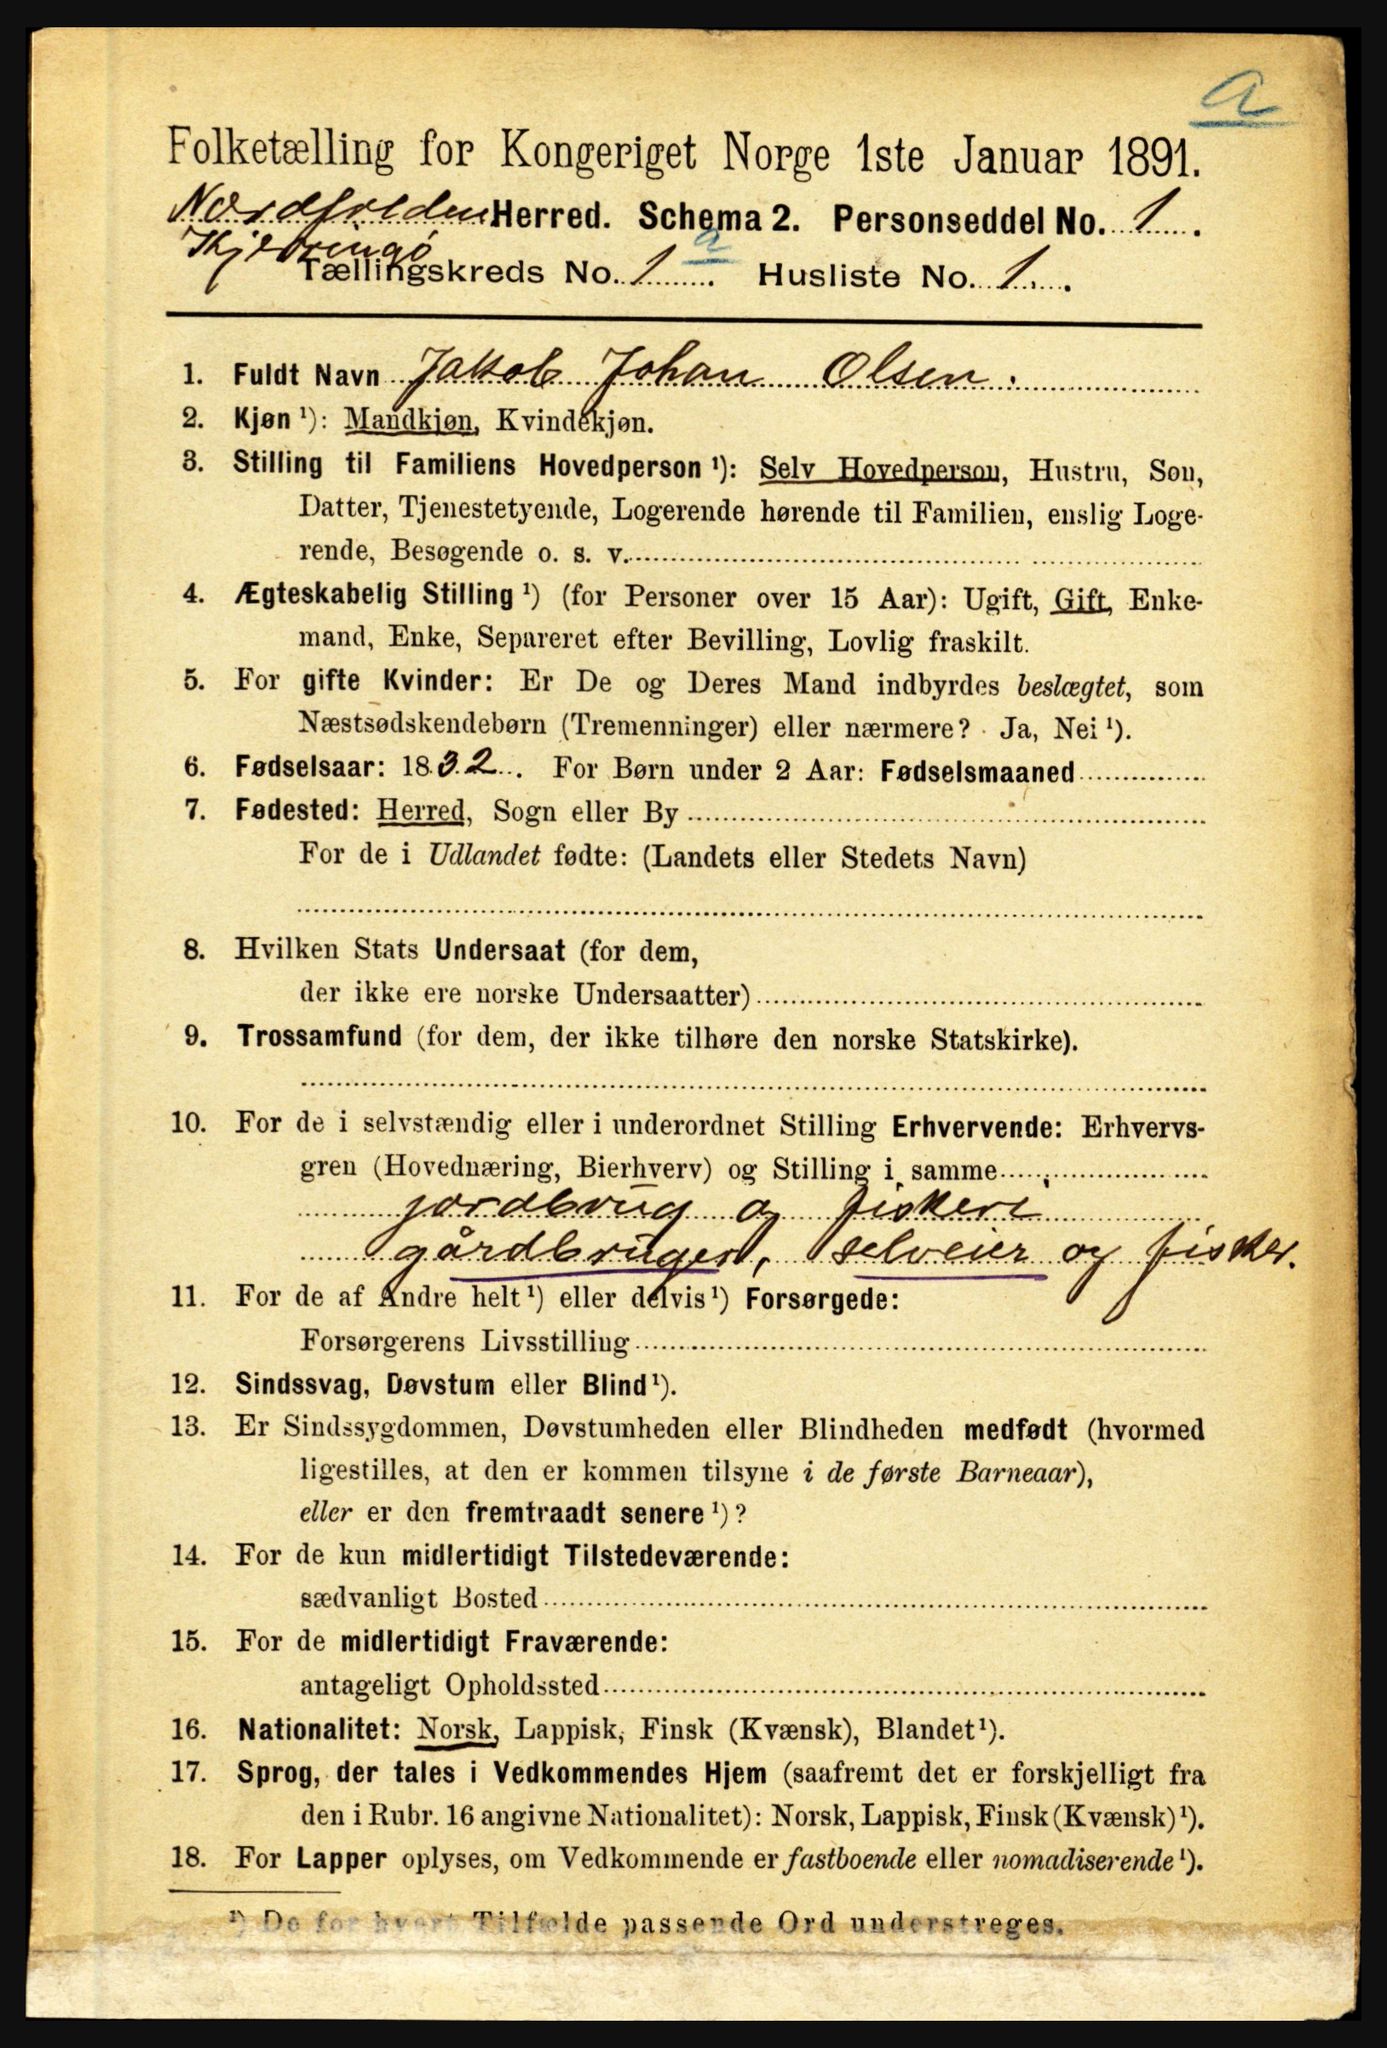 a
Folketælling for Kongeriget Norge 1ste Januar 1891.
Nordfolden Herred. Schema 2. Personseddel No. 1.
Kjerringø
Tællingskreds No. 1 a. Husliste No. 1.
1. Fuldt Navn Jakob Johan Olsen.
2. Kjøn ¹): Mandkjøn, Kvindekjøn.
3. Stilling til Familiens Hovedperson ¹): Selv Hovedperson, Hustru, Søn,
Datter, Tjenestetyende, Logerende hørende til Familien, enslig Loge-
rende, Besøgende o. s. v.
4. Ægteskabelig Stilling ¹) (for Personer over 15 Aar): Ugift, Gift, Enke-
mand, Enke, Separeret efter Bevilling, Lovlig fraskilt.
5. For gifte Kvinder: Er De og Deres Mand indbyrdes beslægtet, som
Næstsødskendebørn (Tremenninger) eller nærmere? Ja, Nei ¹).
6. Fødselsaar: 1832. For Børn under 2 Aar: Fødselsmaaned
7. Fødested: Herred, Sogn eller By
For de i Udlandet fødte: (Landets eller Stedets Navn)
8. Hvilken Stats Undersaat (for dem,
der ikke ere norske Undersaatter)
9. Trossamfund (for dem, der ikke tilhøre den norske Statskirke).
10. For de i selvstændig eller i underordnet Stilling Erhvervende: Erhvervs-
gren (Hovednæring, Bierhverv) og Stilling i samme
jordbrug og fiskeri
gårdbruger, selveier og fisker.
11. For de af Andre helt ¹) eller delvis ¹) Forsørgede:
Forsørgerens Livsstilling
12. Sindssvag, Døvstum eller Blind ¹).
13. Er Sindssygdommen, Døvstumheden eller Blindheden medfødt (hvormed
ligestilles, at den er kommen tilsyne i de første Barneaar),
eller er den fremtraadt senere ¹)?
14. For de kun midlertidigt Tilstedeværende:
sædvanligt Bosted
15. For de midlertidigt Fraværende:
antageligt Opholdssted
16. Nationalitet: Norsk, Lappisk, Finsk (Kvænsk), Blandet ¹).
17. Sprog, der tales i Vedkommendes Hjem (saafremt det er forskjelligt fra
den i Rubr. 16 angivne Nationalitet): Norsk, Lappisk, Finsk (Kvænsk) ¹).
18. For Lapper oplyses, om Vedkommende er fastboende eller nomadiserende ¹).
¹) De for hvert Tilfælde passende Ord understreges.